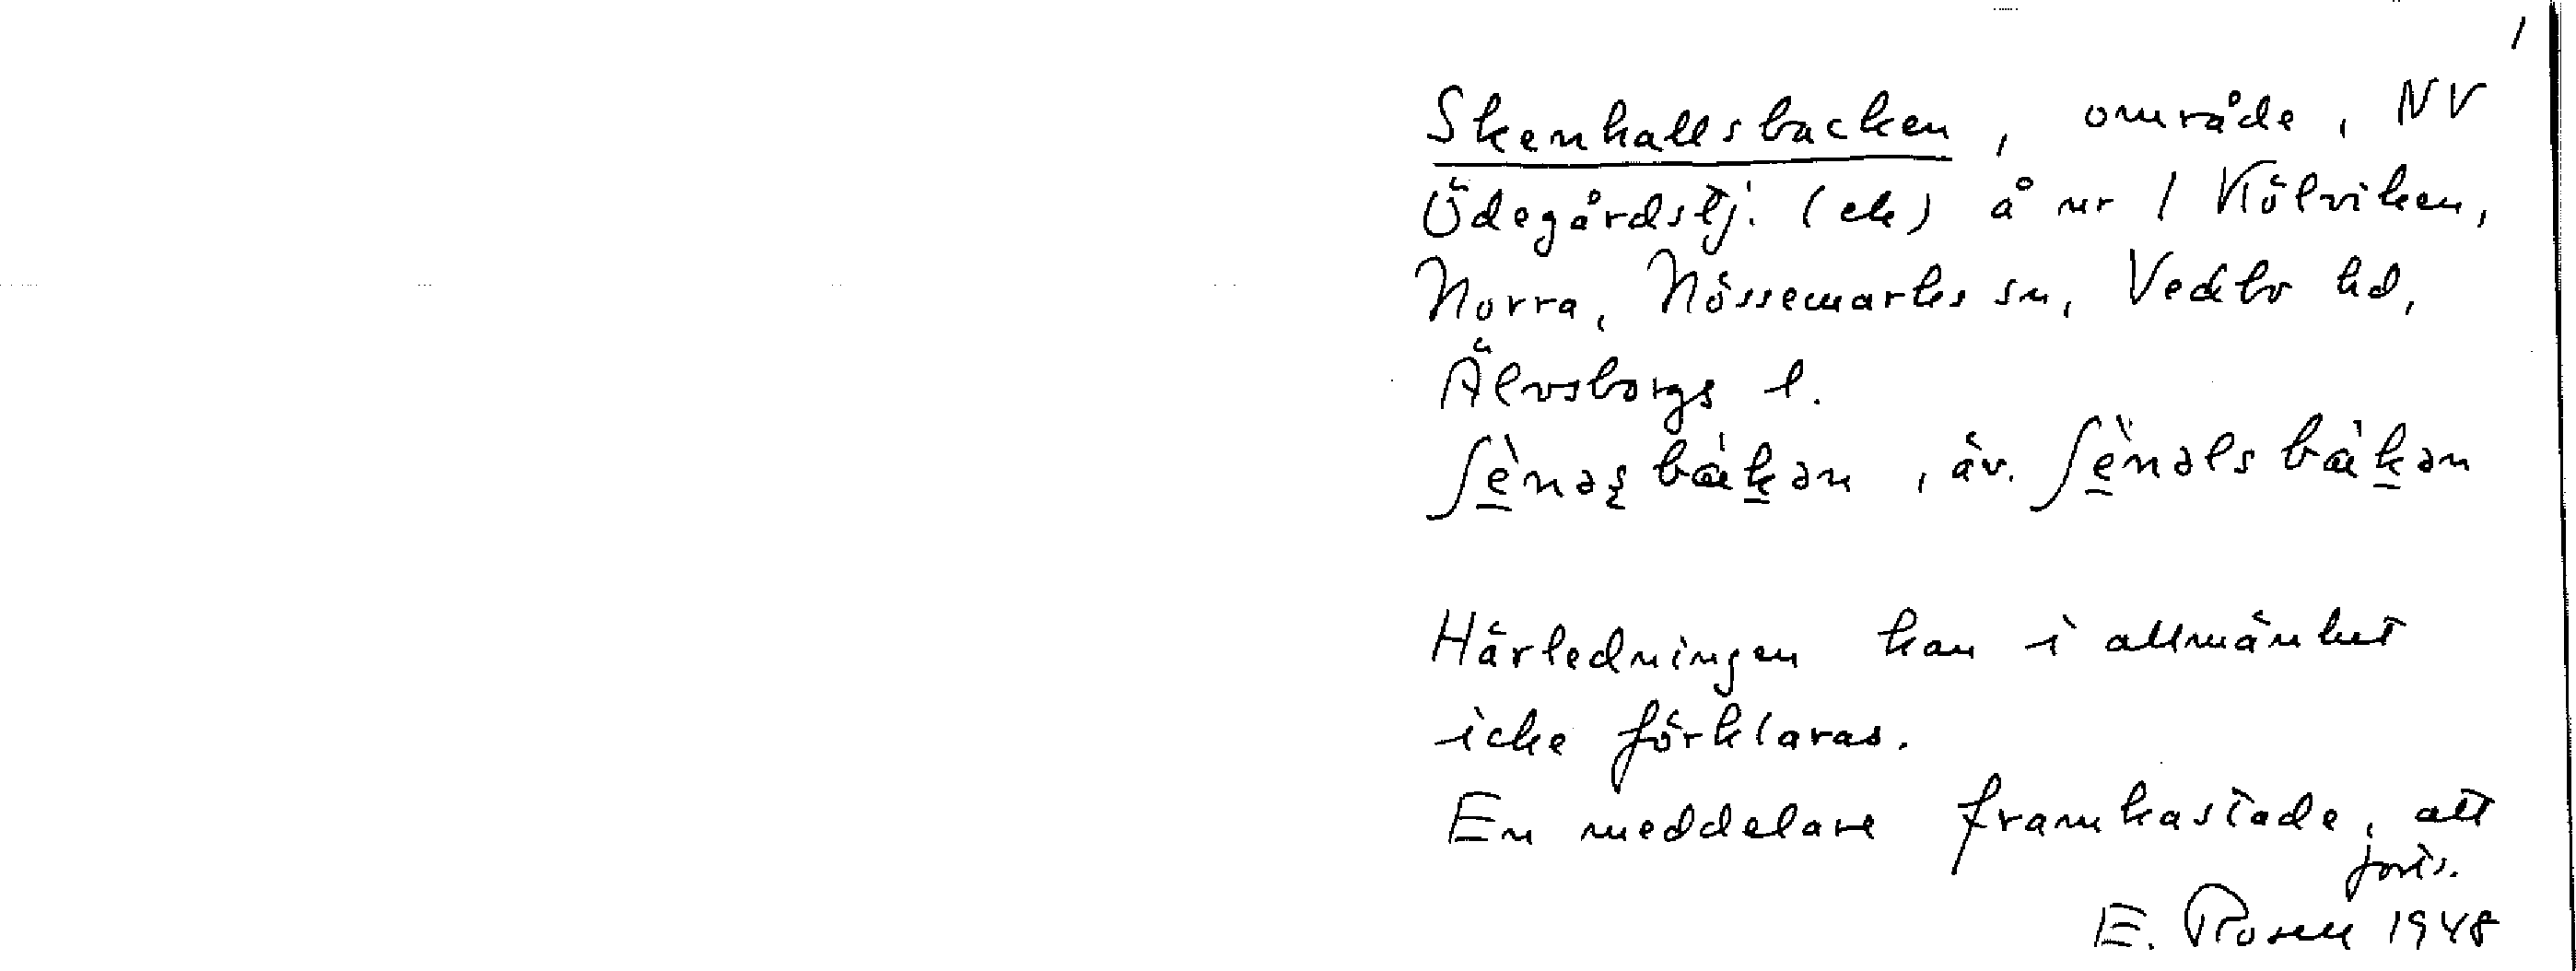 1
Skenhallsbacken, område, NV
Ödegårdstj. (ek) å nr 1 Kölviken,
Norra, Nössemarks sn, Vedbo hd,
Älvsborgs l.
ʃènəʂbàkən, äv. ʃènəlsbàkən
Härledningen kan i allmänhet
icke förklaras.
En meddelare framkastade, att
forts.
E. Rosell 1948